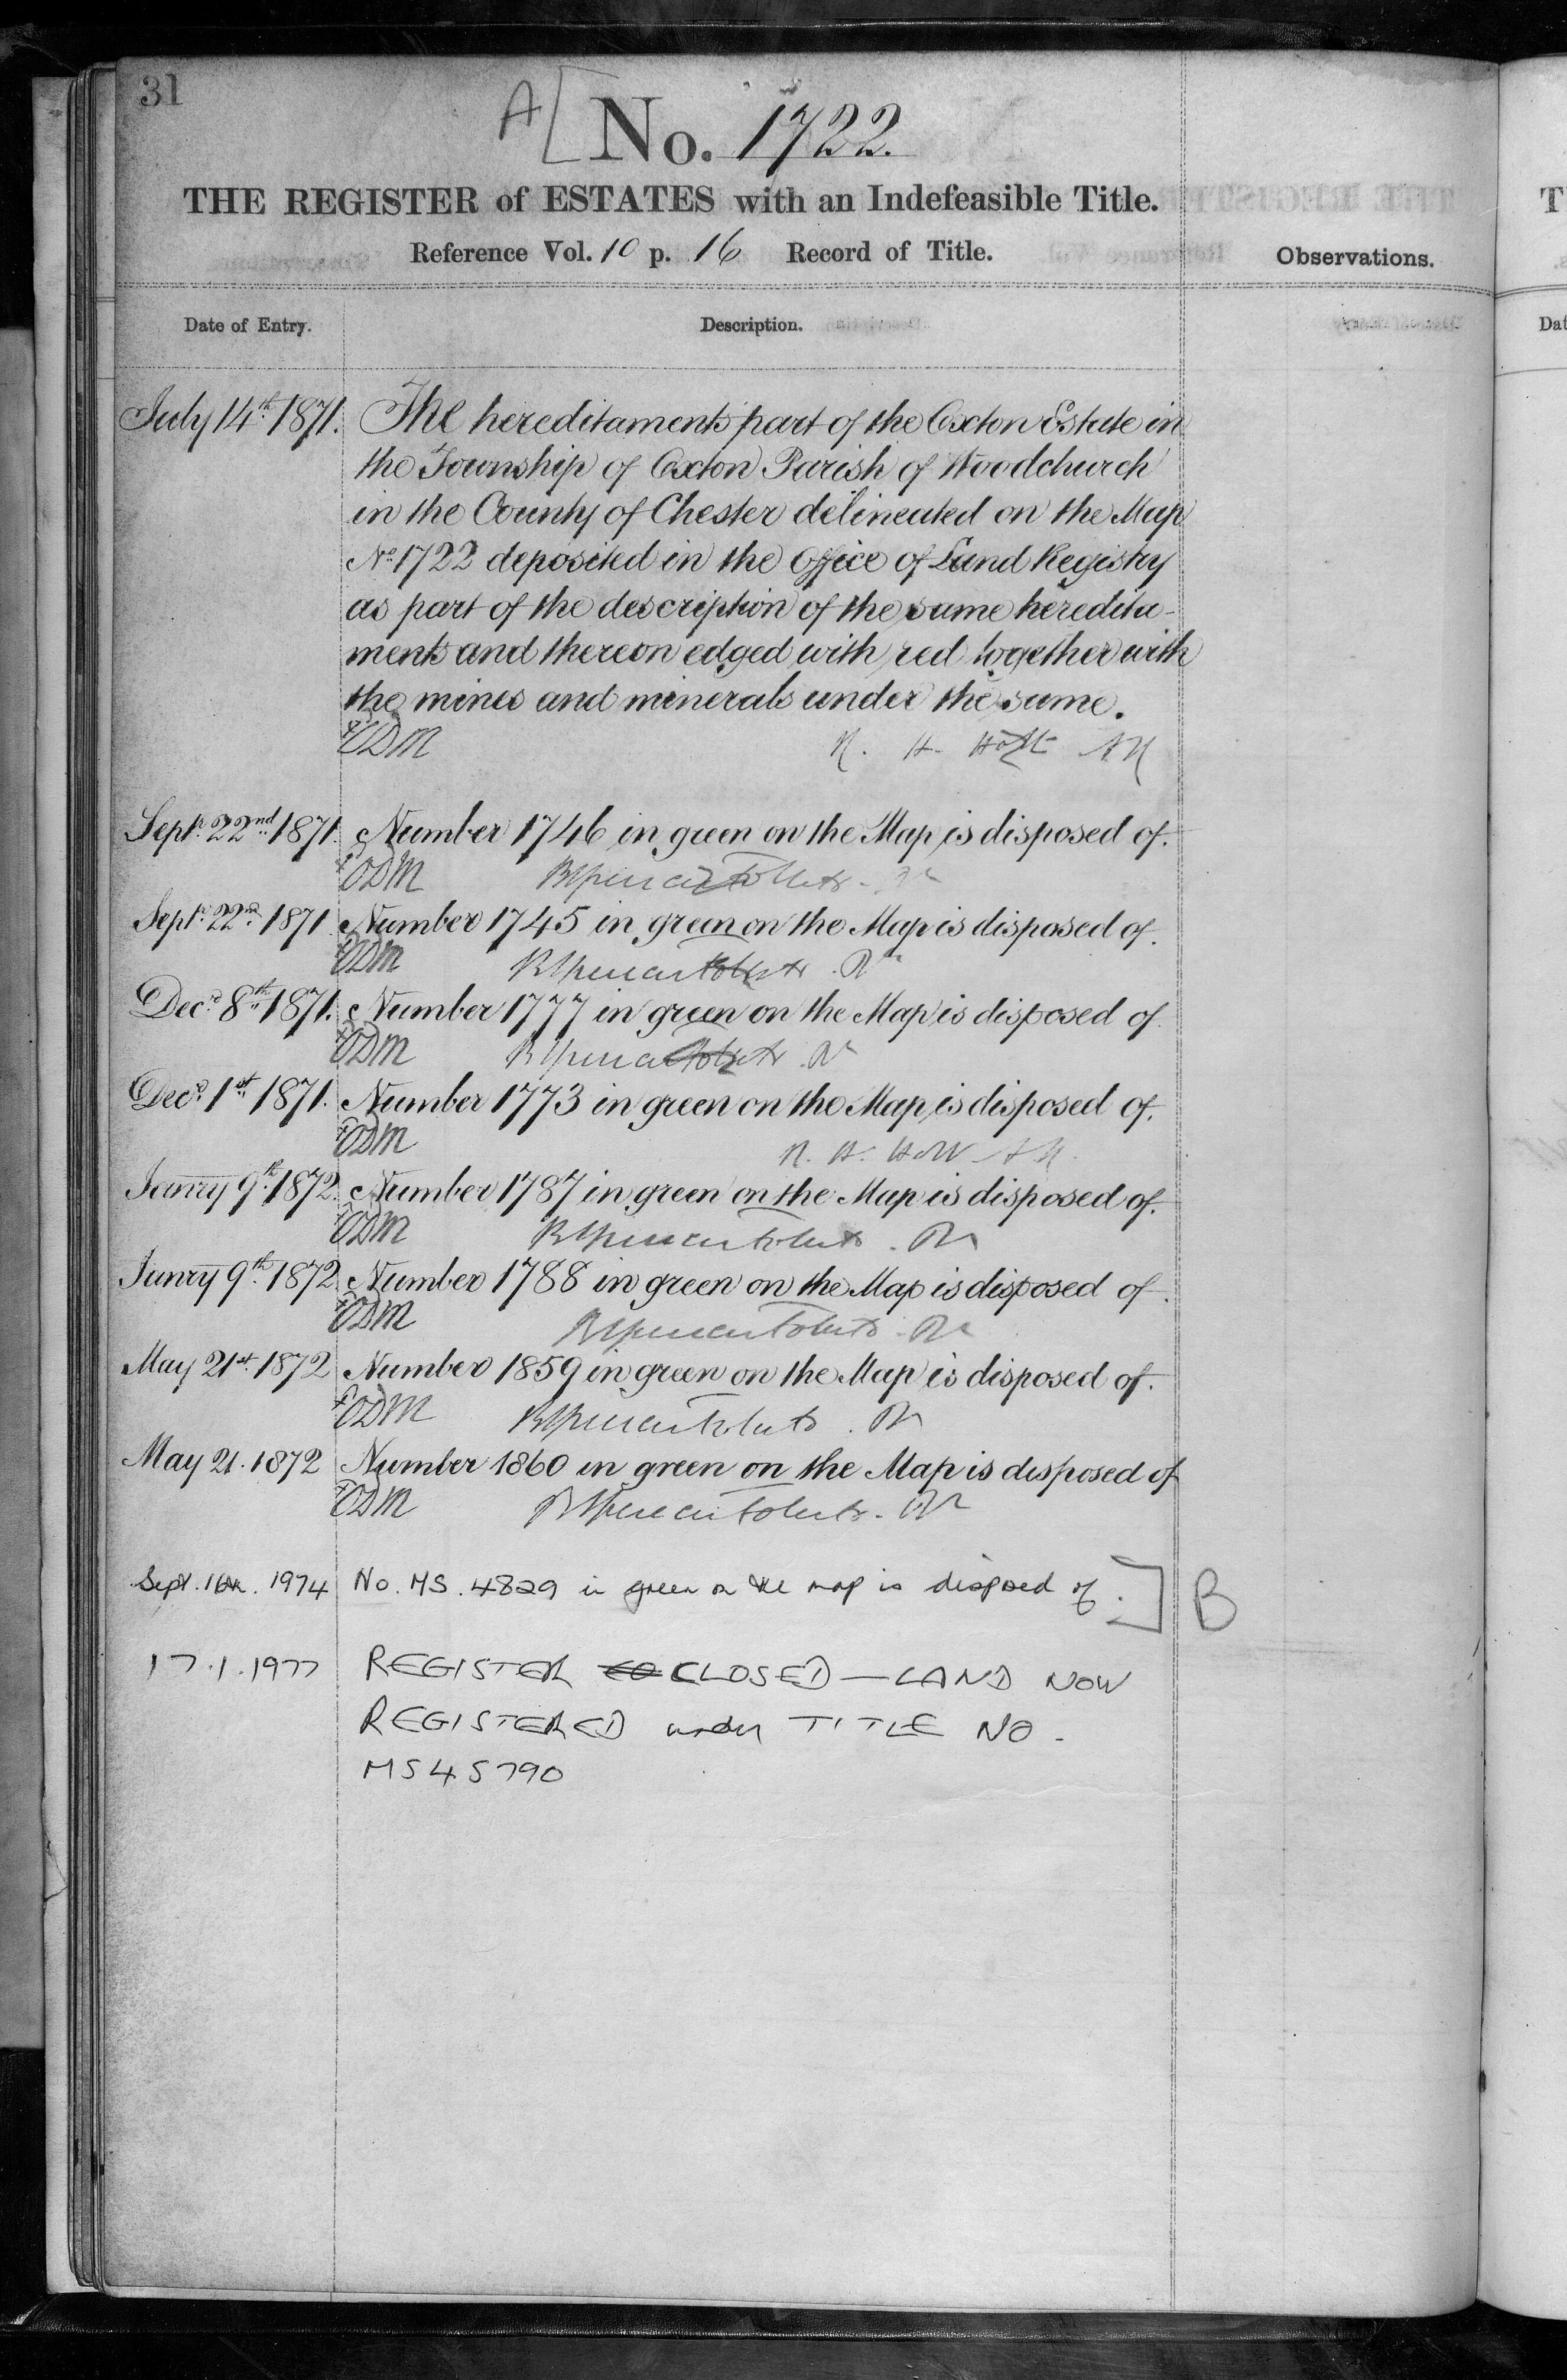 31
A [ No. 1722.
THE REGISTER of ESTATES with an Indefeasible Title.
Reference Vol. 10 p. 16 Record of Title.
Observations.
Date of Entry.
Description.
July 14th 1871. The hereditaments part of the Oxton Estate in
the Township of Oxton Parish of Woodchurch
in the County of Chester delineated on the Map
No. 1722 deposited in the Office of Land Registry
as part of the description of the same heredita-
ments and thereon edged with red together with
the mines and minerals under the same.
R. H. Holt
Septr. 22nd 1871. Number 1746 in green on the Map is disposed of.
Septr. 22nd 1871 Number 1745 in green on the Map is disposed of.
Decr. 8th 1871. Number 1777 in green on the Map is disposed of
Decr. 1st 1871. Number 1773 in green on the Map is disposed of.
R. H. Holt
Janry 9th 1872. Number 1787 in green on the Map is disposed of.
Janry 9th 1872 Number 1788 in green on the Map is disposed of.
May 21st 1872 Number 1859 in green on the Map is disposed of.
May 21. 1872 Number 1860 in green on the Map is disposed of
Sept. 1974 No. MS. 4829 in green on the map is disposed of. ] B
17.1.1977 REGISTER CLOSED — LAND NOW
REGISTERED under TITLE NO.
MS45790
T
Dat